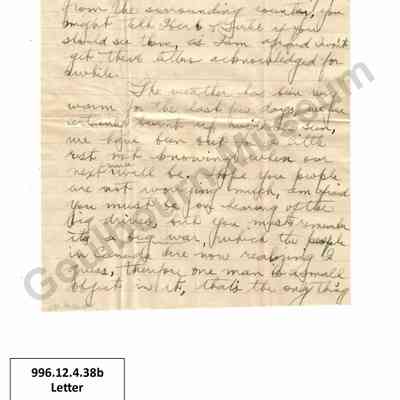 from the surrounding country, you
might tell Herb & if you
should see them, as I am afraid I won't
get their letter acknowledged for
awhile.
The weather has been very
warm for the last few days, we are
certainly burnt up with the sun,
we have been out for a little
rest not knowing when our
next move will be. Hope you people
are not worrying much, I'm afraid
you must be, on hearing of the
big drives, but you must remember
its a big war, which the people
in Canada are now realizing I
guess, therefore one man is a small
object in it, that's the only thing
Goulbourn Museum
996.12.4.38b
Letter